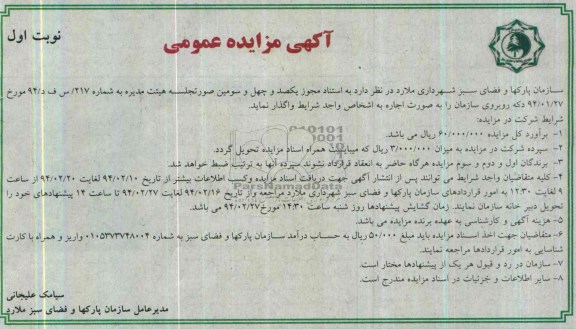 آگهی مزایده عمومی
نوبت اول
سازمان پارکها و فضای سبز شهرداری ملارد در نظر دارد به استناد مجوز یکصد و چهل و سومین صورتجلسه هیئت مدیره به شماره ۲۱۷/ س ف د/۹۴ مورخ
۹۴/۰۱/۲۷ دکه روبروی سازمان را به صورت اجاره به اشخاص واجد شرایط واگذار نماید.
شرایط شرکت در مزایده:
۱- برآورد کل مزایده ۶۰/۰۰۰/۰۰۰ ریال می باشد.
۲- سپرده شرکت در مزایده به میزان ۳/۰۰۰/۰۰۰ ریال که میبایست همراه اسناد مزایده تحویل گردد.
۳- برندگان اول و دوم و سوم مزایده هرگاه حاضر به انعقاد قرارداد نشوند سپرده آنها به ترتیب ضبط خواهد شد.
۴- کلیه متقاضیان واجد شرایط می توانند پس از انتشار آگهی جهت دریافت اسناد مزایده وکسب اطلاعات بیشتر از تاریخ ۹۴/۰۲/۱۰ لغایت ۹۴/۰۲/۲۰ از ساعت
۹ لغایت ۱۲:۳۰ به امور قراردادهای سازمان پارکها و فضای سبز شهرداری ملارد مراجعه واز تاریخ ۹۴/۰۲/۱۶ لغایت ۹۴/۰۲/۲۷ تا ساعت ۱۴ پیشنهادهای خود را
تحویل دبیر خانه سازمان نمایند. زمان گشایش پیشنهادها روز شنبه ساعت ۱۴:۳۰ مورخ ۹۴/۰۲/۲۷ می باشد.
۵- هزینه آگهی و کارشناسی به عهده برنده مزایده می باشد.
۶- متقاضیان جهت اخذ اسناد مزایده باید مبلغ ۵۰/۰۰۰ ریال به حساب درآمد سازمان پارکها و فضای سبز به شماره ۰۱۰۵۳۷۳۷۴۸۰۰۴ واریز و همراه با کارت
شناسایی به امور قراردادها مراجعه نمایند.
۷- سازمان در رد و قبول هر یک از پیشنهادها مختار است.
۸- سایر اطلاعات و جزئیات در اسناد مزایده مندرج است.
سیامک علیجانی
مدیرعامل سازمان پارکها و فضای سبز ملارد
ParsNamadData